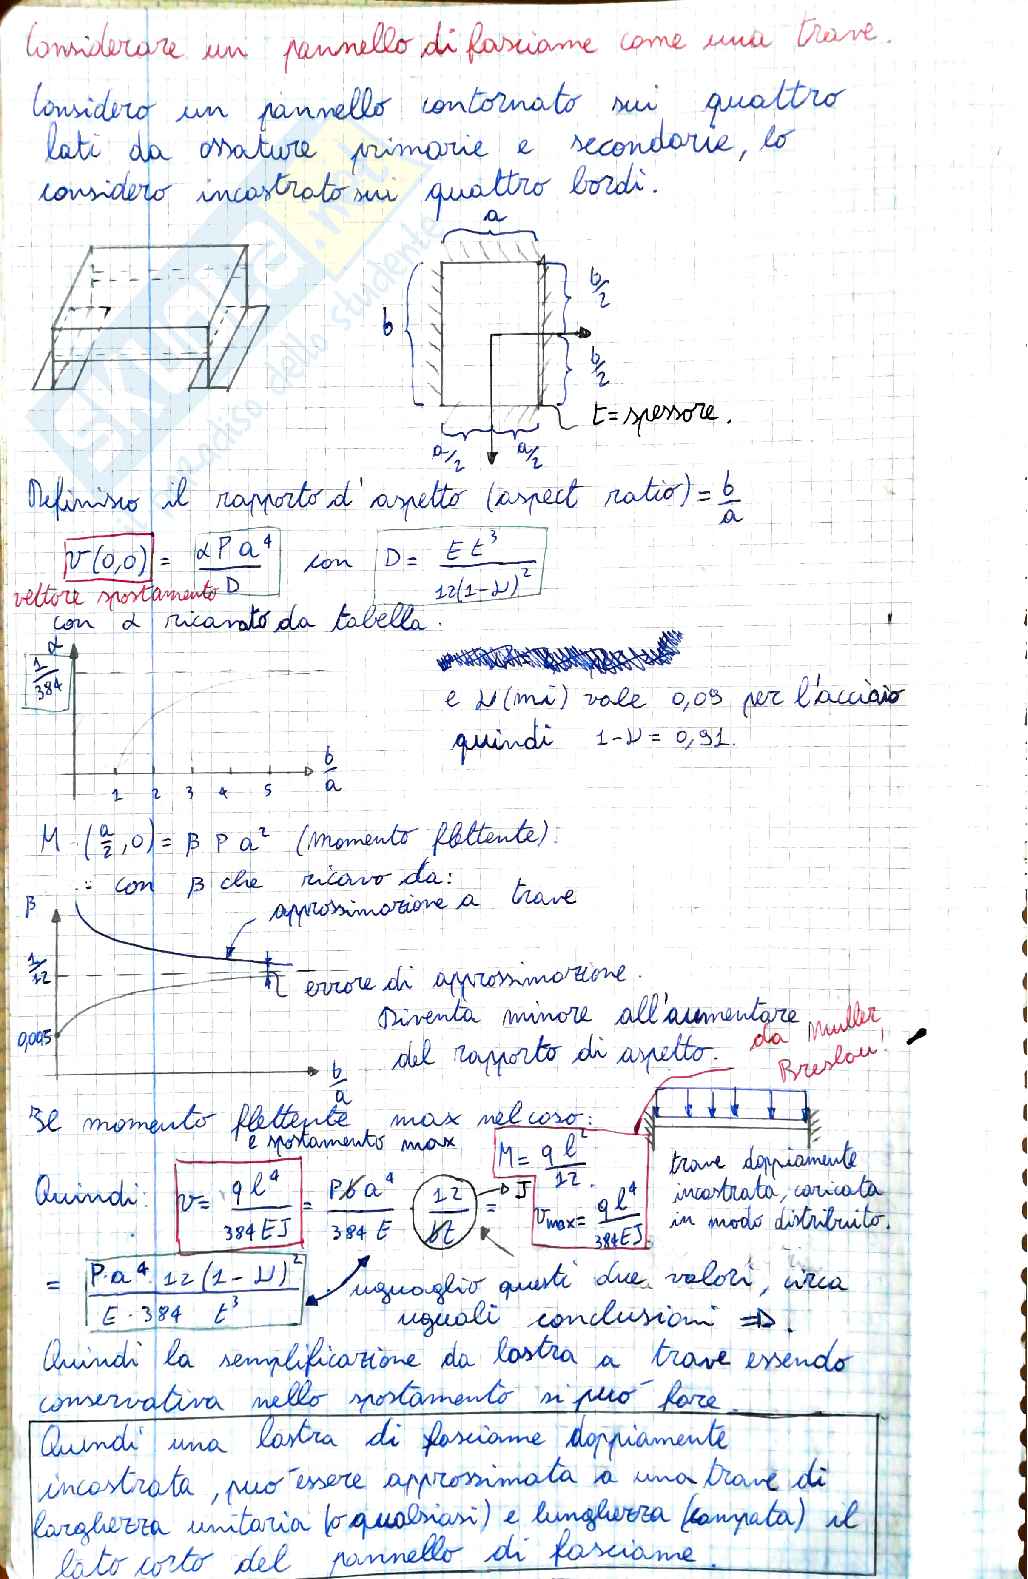 Considerare un pannello di fasciame come una trave.
Considero un pannello contornato sui quattro
lati da ossature primarie e secondarie, lo
considero incastrato sui quattro bordi.
a
b
b/2
b/2
a/2 a/2
t = spessore.
SKUOLA.net
il paradiso dello studente
Definisco il rapporto d'aspetto (aspect ratio) = b/a
v(0,0) = αPa⁴/D con D = Et³/12(1-ν)²
vettore spostamento
con α ricavato da tabella.
α
1/384
1 2 3 4 5 b/a
e ν (mi) vale 0,09 per l'acciaio
quindi 1-ν = 0,91.
M (a/2, 0) = β P a² (momento flettente).
con β che ricavo da:
β
approssimazione a trave
1/12
errore di approssimazione.
0,005
Diventa minore all'aumentare
del rapporto di aspetto.
b/a
da Muller
Breslau!
Il momento flettente max nel caso:
e spostamento max
M = ql²/12.
vmax = ql⁴/384EJ
trave doppiamente
incastrata, caricata
in modo distribuito.
Quindi: v = ql⁴/384EJ = Pba⁴/384E · 12/bt = J
= P·a⁴·12(1-ν)²/E·384 t³
uguaglio questi due valori, circa
uguali conclusioni ⇒.
Quindi la semplificazione da lastra a trave essendo
conservativa nello spostamento si può fare.
Quindi una lastra di fasciame doppiamente
incastrata, può essere approssimata a una trave di
larghezza unitaria (o qualsiasi) e lunghezza (campata) il
lato corto del pannello di fasciame.